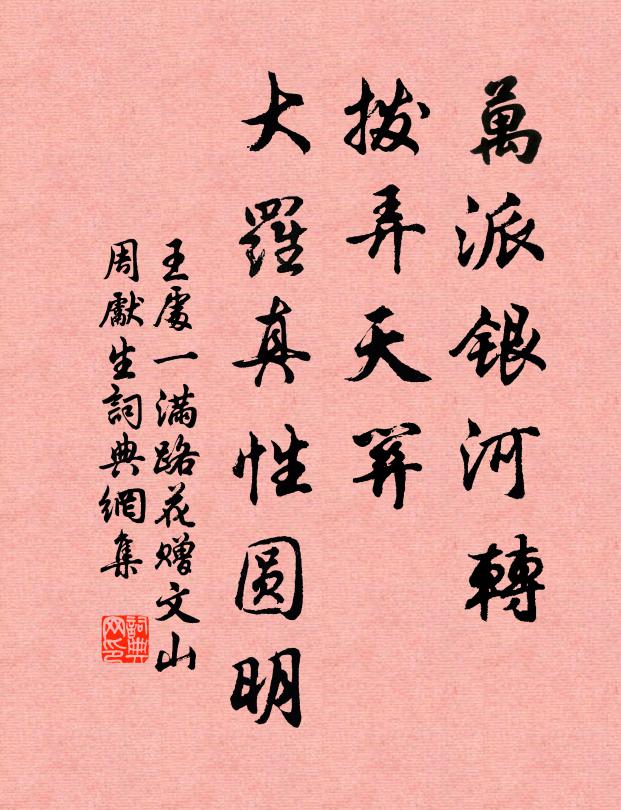 萬派銀河轉
撥弄天關
大羅真性圓明
王處一滿路花贈文山
周獻生詞典網集
詞典网印